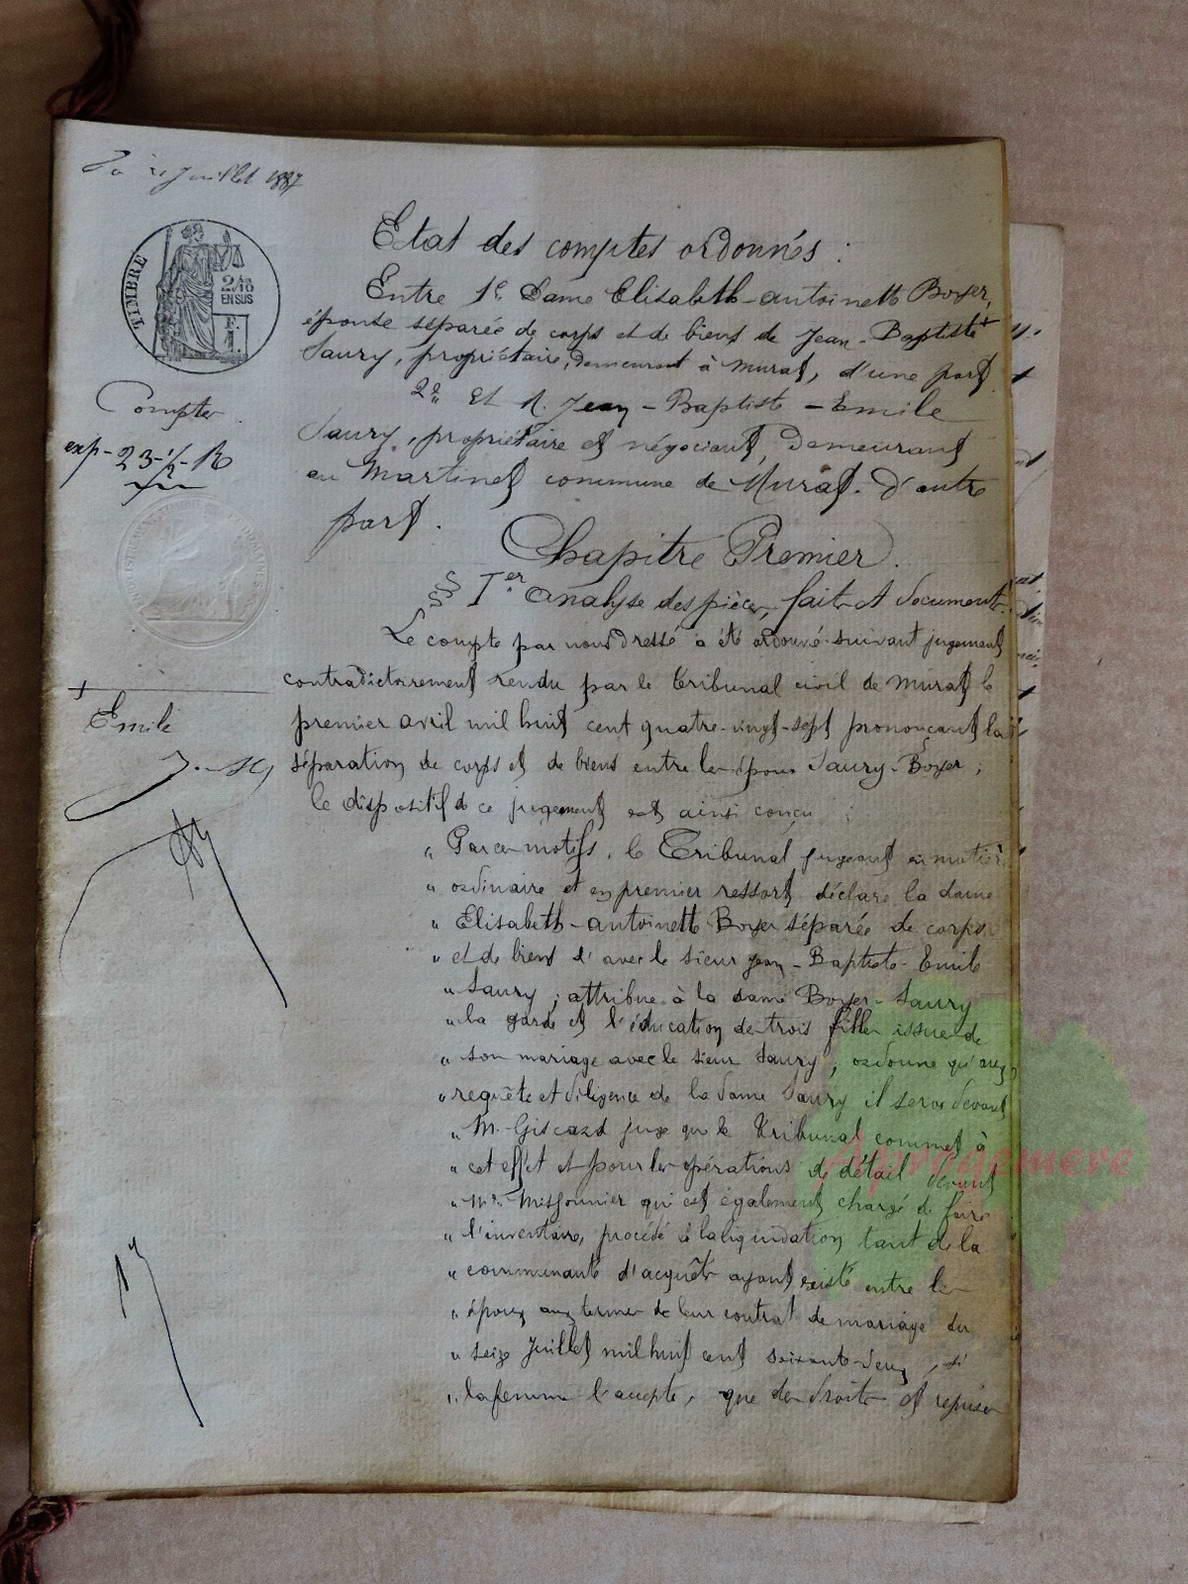 Juillet 1887
TIMBRE
2/10
EN SUS
Compte
exp - 23 -
Emile
Etat des comptes ordonnés :
Entre 1º Dame Elisabeth-antoinette Boyer,
épouse séparée de corps et de biens de Jean-Baptiste +
Saury, propriétaire, demeurant à Murat, d'une part
2º Et M. Jean-Baptiste-Emile
Saury, propriétaire et négociant, demeurant
au Martinet commune de Murat. D'autre
part.
Chapitre Premier.
§§ Ier analyse des pièces, faits et documents.
Le compte par nous dressé a été ordonné suivant jugement
contradictoirement rendu par le Tribunal civil de Murat le
premier avril mil huit cent quatre-vingt-sept prononçant la
séparation de corps et de biens entre les époux Saury-Boyer ;
le dispositif de ce jugement est ainsi conçu :
" Par ces motifs, le Tribunal jugeant en matière
" ordinaire et en premier ressort, déclare la dame
" Elisabeth-antoinette Boyer séparée de corps
" et de biens d'avec le sieur Jean-Baptiste-Emile
" Saury ; attribue à la dame Boyer-Saury
" la garde et l'éducation de trois filles issues de
" son mariage avec le sieur Saury ; ordonne qu'aux
" requête et diligence de la dame Saury il sera devant
" M. Giscard juge que le Tribunal commet à
" cet effet et pour les opérations de détail devant
" Me Missonnier qui est également chargé de faire
" l'inventaire, procédé à la liquidation tant de la
" communauté d'acquêts ayant existé entre les
" époux aux termes de leur contrat de mariage du
" seize Juillet mil huit cent soixante-deux, si
" la femme l'accepte, que des droits et reprises
Aprogemere